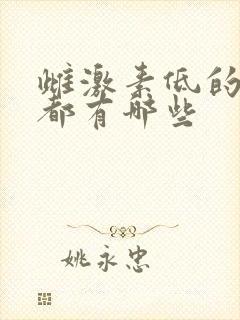 雌激素低的
都有哪些
姚永忠